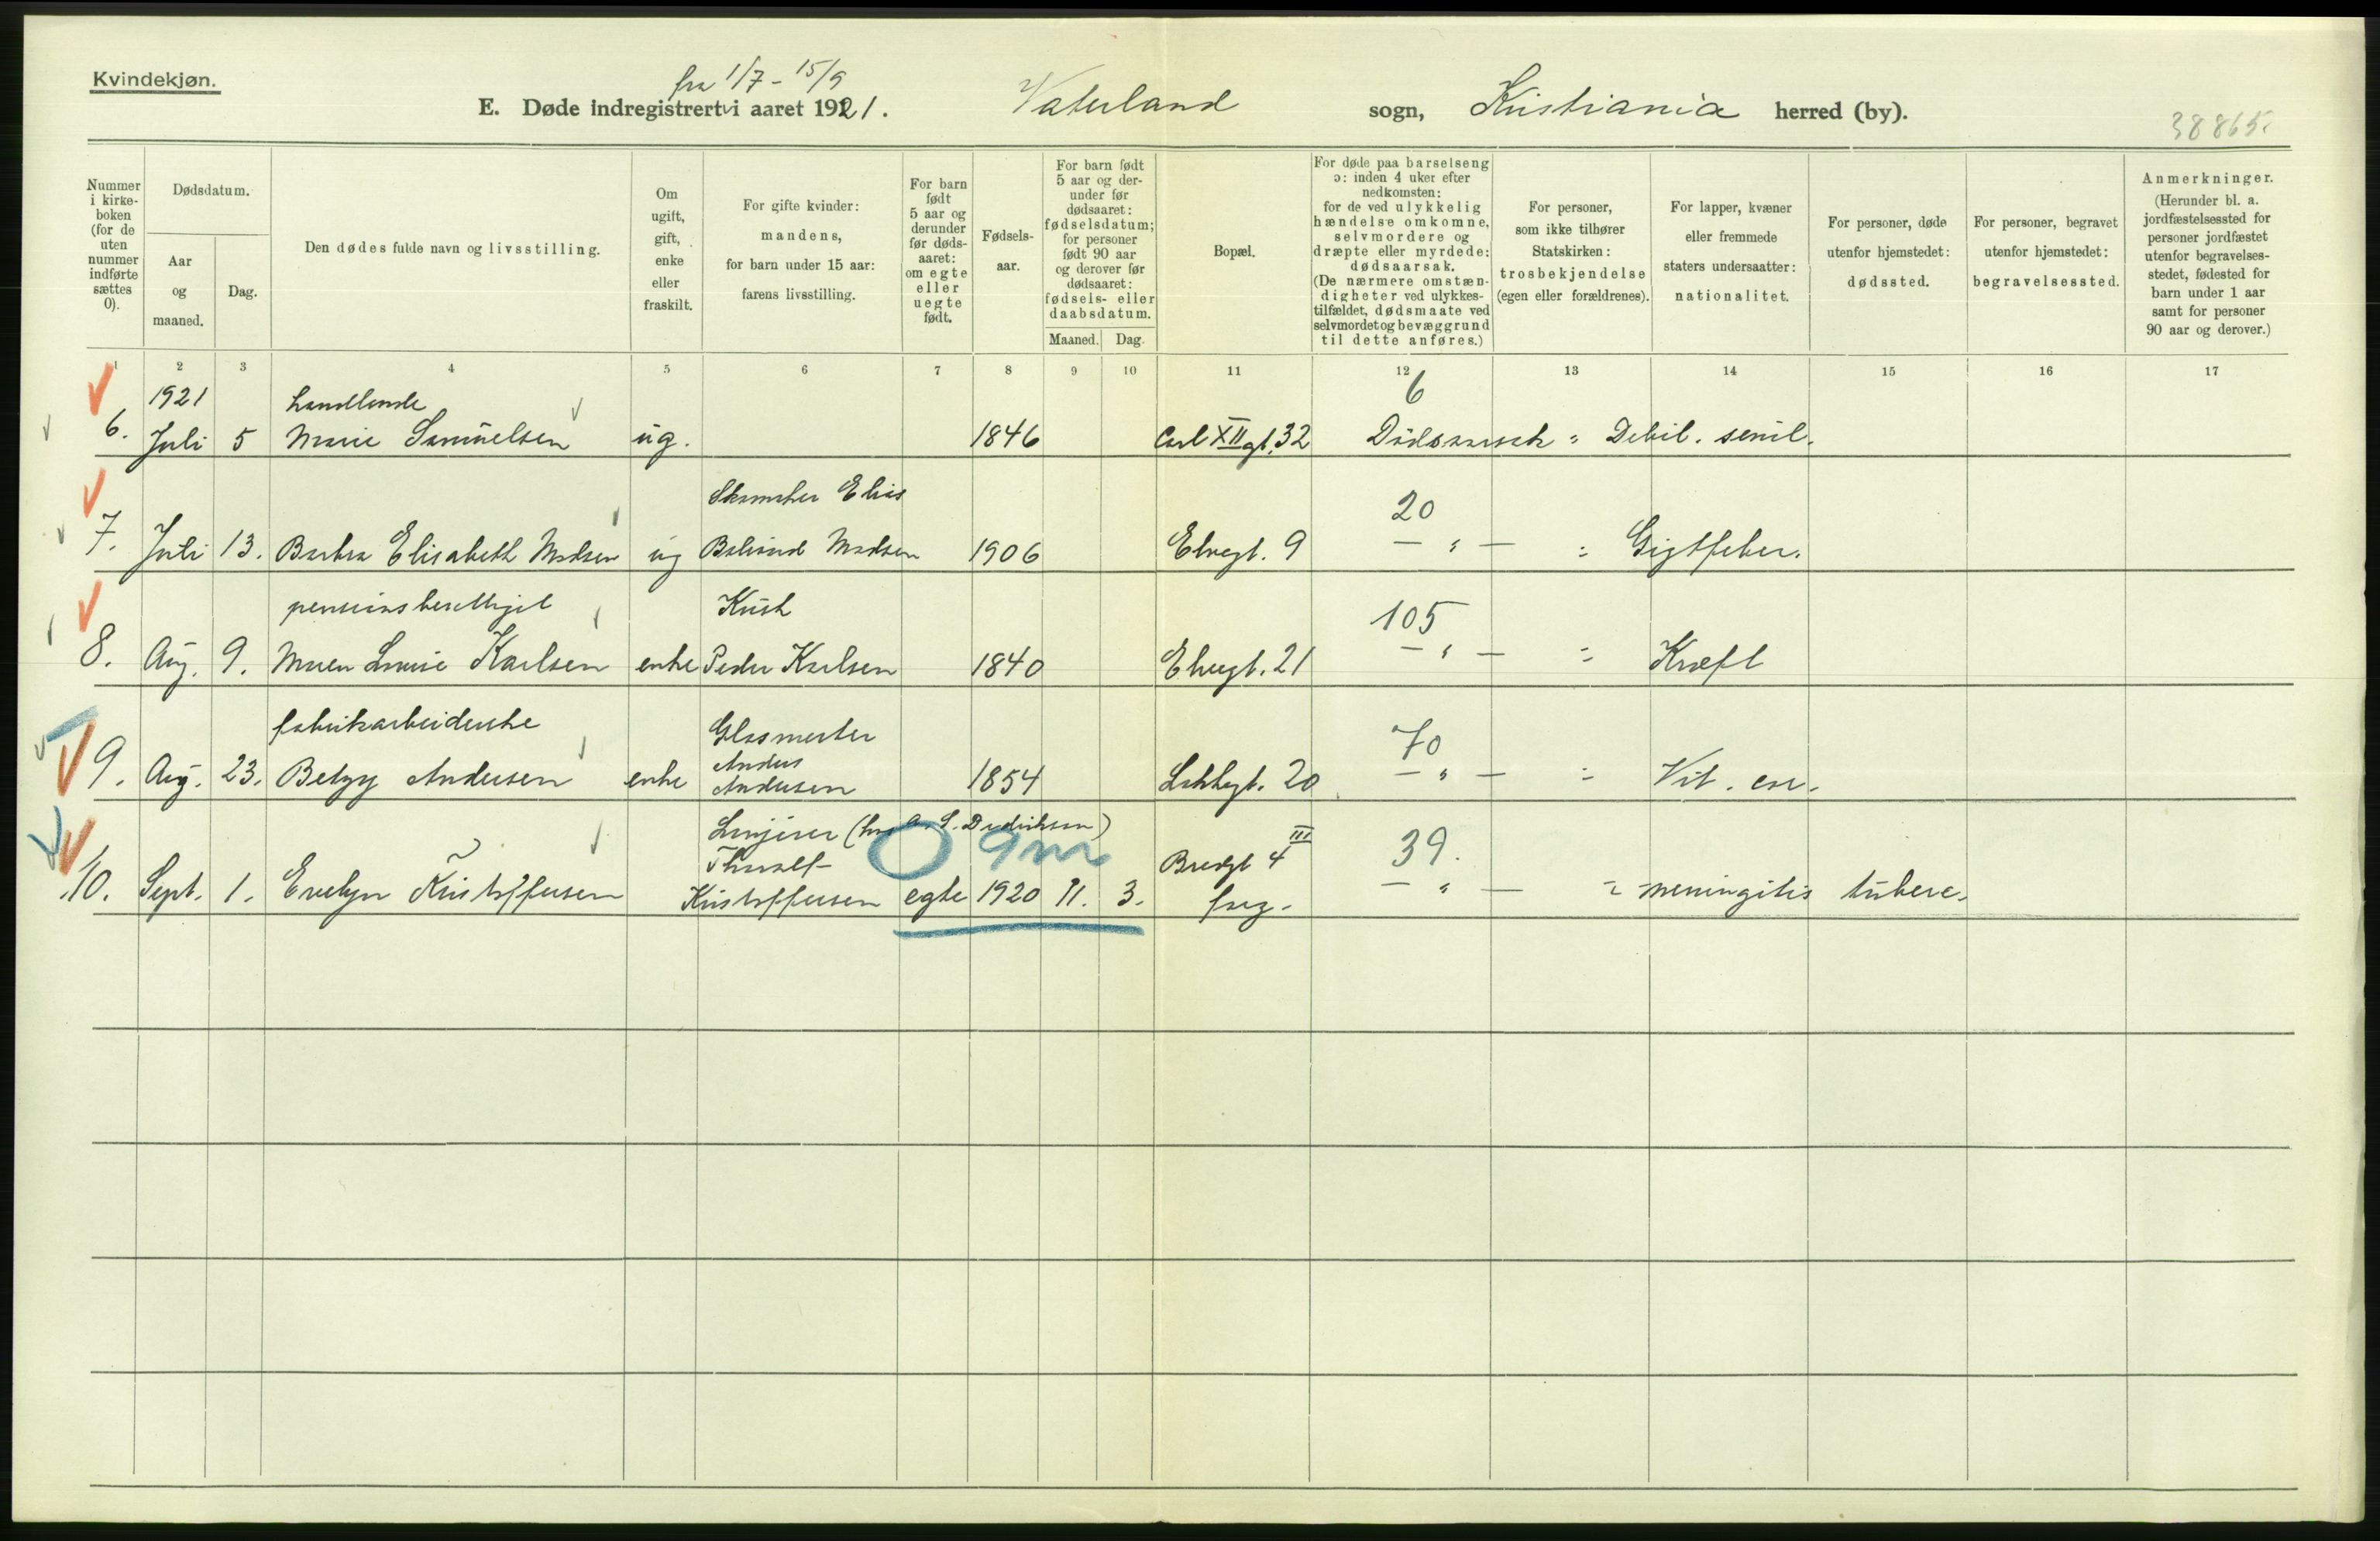 Kvindekjøn.
fra 1/7 - 15/9
E. Døde indregistrert i aaret 1921. Vaterland sogn, Kristiania herred (by).
38865.
Nummer i kirkeboken (for de uten nummer indførte sættes 0).
Dødsdatum.
Aar og maaned.
Dag.
Den dødes fulde navn og livsstilling.
Om ugift, gift, enke eller fraskilt.
For gifte kvinder: mandens, for barn under 15 aar: farens livsstilling.
For barn født 5 aar og derunder før dødsaaret: om egte eller uegte født.
Fødselsaar.
For barn født 5 aar og derunder før dødsaaret: fødselsdatum; for personer født 90 aar og derover før dødsaaret: fødsels- eller daabsdatum.
Maaned. Dag.
Bopæl.
For døde paa barselseng ɔ: inden 4 uker efter nedkomsten; for de ved ulykkelig hændelse omkomne, selvmordere og dræpte eller myrdede: dødsaarsak. (De nærmere omstændigheter ved ulykkestilfældet, dødsmaate ved selvmordet og bevæggrund til dette anføres.)
For personer, som ikke tilhører Statskirken: trosbekjendelse (egen eller forældrenes).
For lapper, kvæner eller fremmede staters undersaatter: nationalitet.
For personer, døde utenfor hjemstedet: dødssted.
For personer, begravet utenfor hjemstedet: begravelsessted.
Anmerkninger. (Herunder bl. a. jordfæstelsessted for personer jordfæstet utenfor begravelsesstedet, fødested for barn under 1 aar samt for personer 90 aar og derover.)
1 2 3 4 5 6 7 8 9 10 11 12 13 14 15 16 17
1921 handlende 6
6. Juli 5 Marie Samuelsen ug. 1846 Carl XII gt. 32 Dødsaarsak = Debil. senil.
Elias 20
7. Juli 13. Barbra Elisabeth Madsen ug Madsen 1906 Elvegt. 9 — " — = Gigtfeber.
pensionsberettiget Kusk 105
8. Aug. 9. Maren Louise Karlsen enke Peder Karlsen 1840 Elvegt. 21 — " — = Kræft
fabrikarbeiderske Glasmester 70
9. Aug. 23. Betzy Andersen enke Anders Andersen 1854 Lakkegt. 20 — " — = Vit. cor.
(hos S. Dedichsen) 9 m III 39.
10. Sept. 1. Evelyn Kristoffersen Thoralf Kristoffersen egte 1920 11. 3. Bredgt 4 — " — = meningitis tuberc.